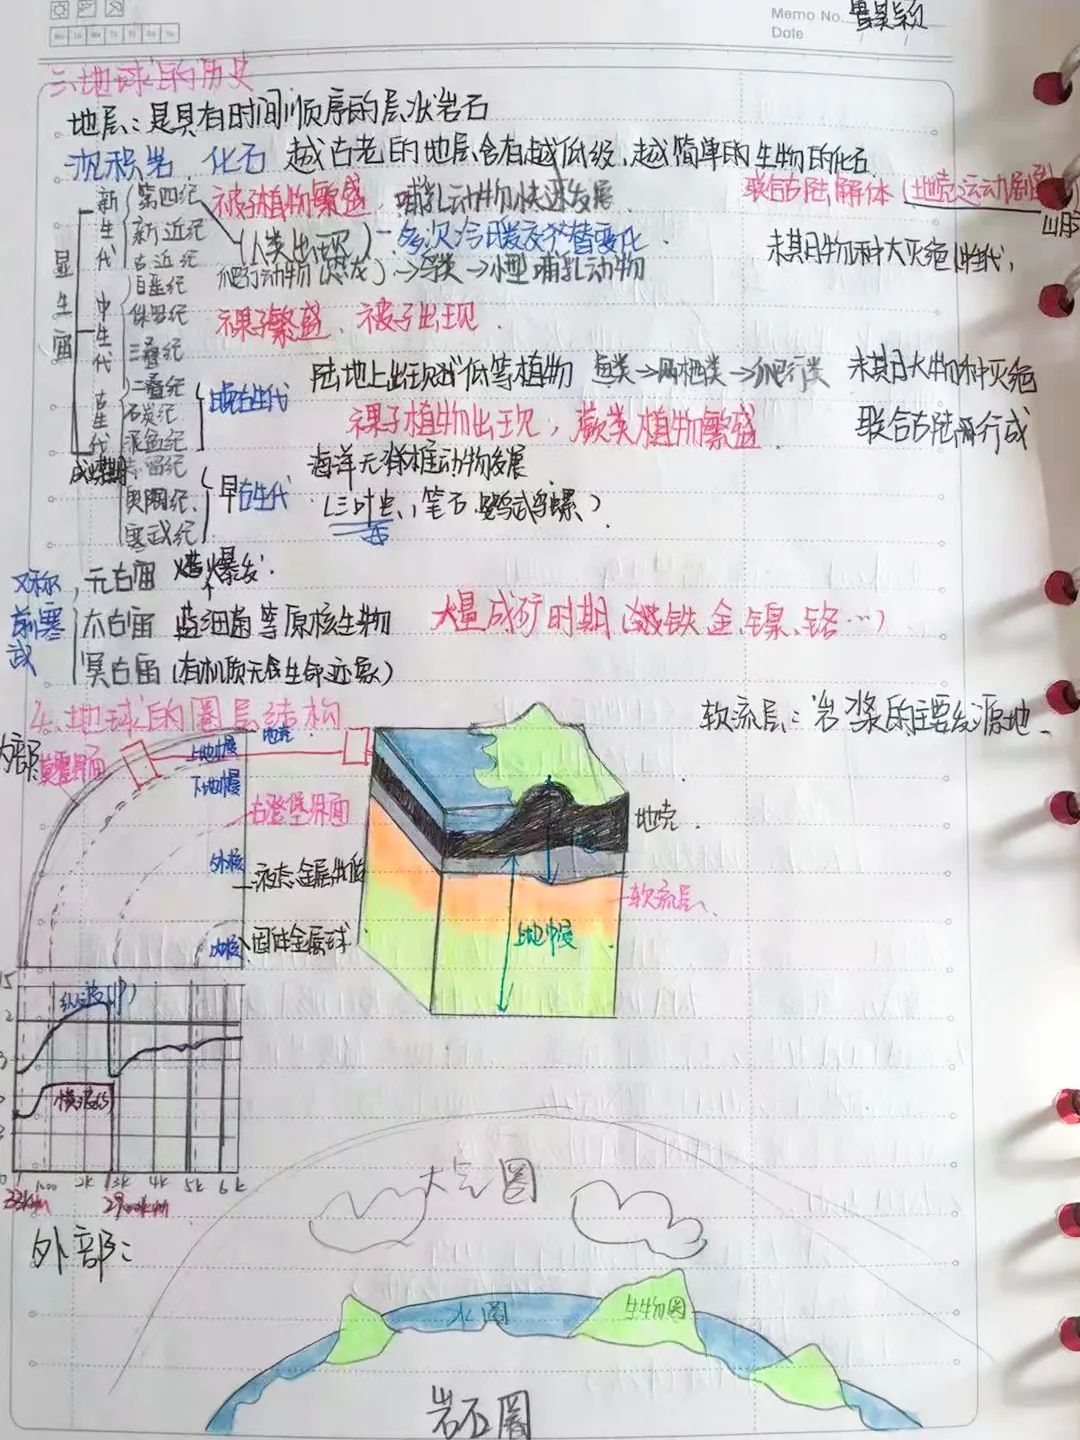 Memo No.
Date
三、地球的历史
地层：是具有时间顺序的层状岩石
沉积岩、化石 越古老的地层含有越低级、越简单的生物的化石
显生宙
新生代
第四纪 被子植物繁盛，哺乳动物快速发展
联合古陆解体（地壳运动剧烈）
新近纪 （人类出现）－多次冷暖交替变化
末期物种大灭绝
古近纪
爬行动物（恐龙）→鸟类→小型哺乳动物
中生代
白垩纪
侏罗纪 裸子繁盛、被子出现
三叠纪
古生代
二叠纪
石炭纪
泥盆纪
晚古生代
陆地上出现低等植物 鱼类→两栖类→爬行类 末期大物种灭绝
裸子植物出现，蕨类植物繁盛 联合古陆形成
志留纪
奥陶纪、
寒武纪
早古生代
海洋无脊椎动物发展
（三叶虫、笔石、鹦鹉螺）
又称前寒武
元古宙 爆发
太古宙 蓝细菌等原核生物 大量成矿时期（铁、金、镍、铬…）
冥古宙（有机质无生命迹象）
4、地球的圈层结构
软流层：岩浆的主要发源地
内部：
莫霍界面
上地幔
地壳
下地幔
古登堡界面
外核 液态金属
内核 固体金属球
地壳
软流层
上地幔
纵波(P)
横波(S)
1000 2k 3k 4k 5k 6k
33km 2900km
外部：
大气圈
水圈
生物圈
岩石圈